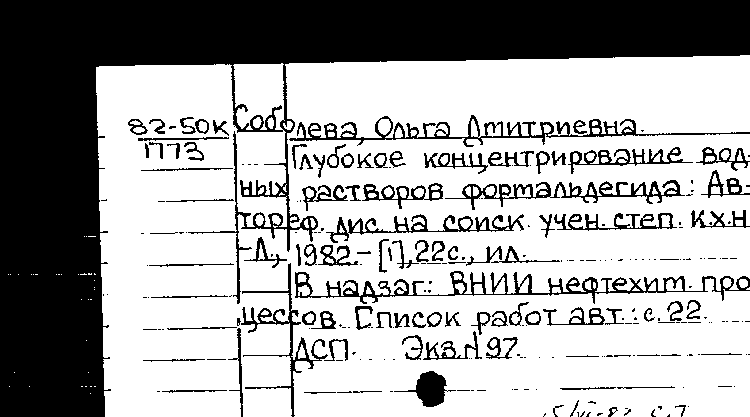 82-50к Соболева, Ольга Дмитриевна.
1773 Глубокое концентрирование вод-
ных растворов формальдегида: Ав-
тореф. дис. на соиск. учен. степ. к.х.н
-Л., 1982.- [1], 22с., ил.
В надзаг.: ВНИИ нефтехим. про
цессов. Список работ авт.: с. 22.
ДСП. Экз. № 97.